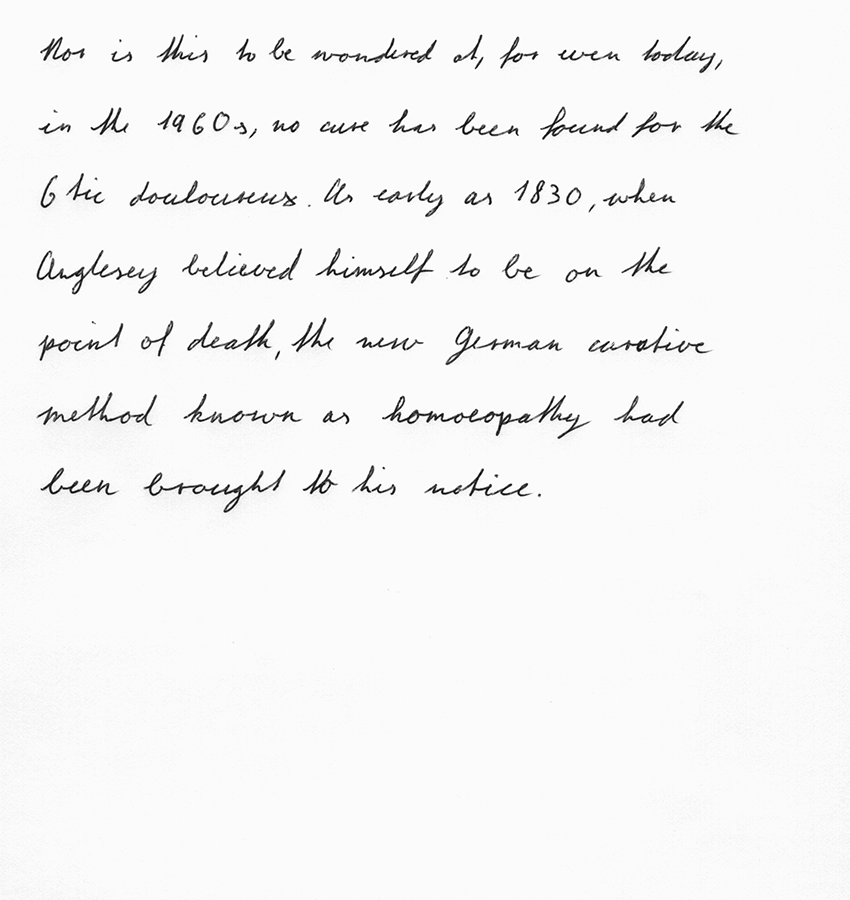 Nor is this to be wondered at, for even today,
in the 1960s, no cure has been found for the
6 tic douloureux. As early as 1830, when
Anglesey believed himself to be on the
point of death, the new German curative
method known as homoeopathy had
been brought to his notice.